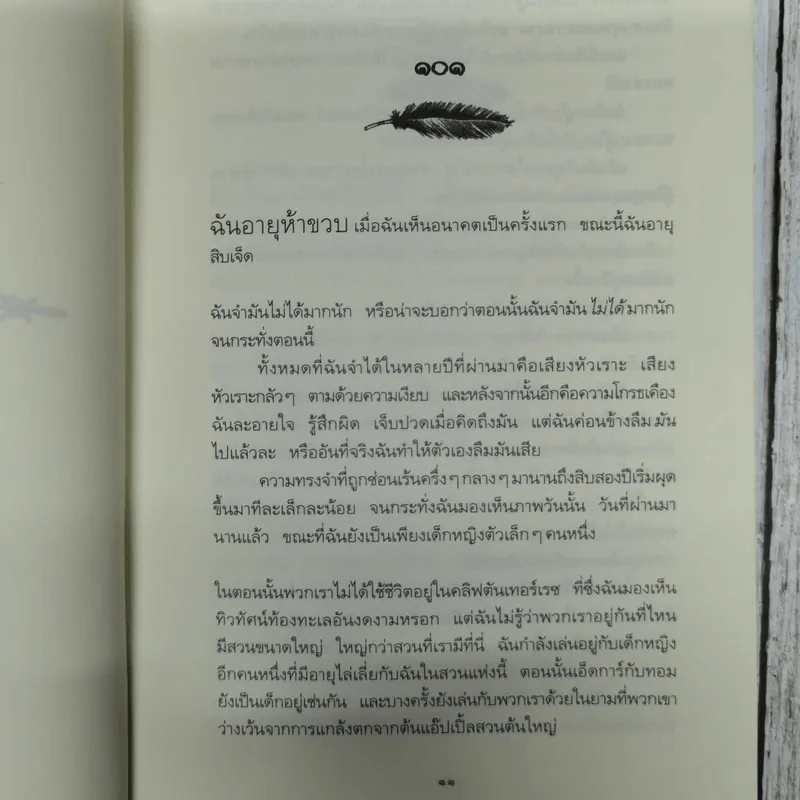 ๑๐๑
ฉันอายุห้าขวบ เมื่อฉันเห็นอนาคตเป็นครั้งแรก ขณะนี้ฉันอายุ
สิบเจ็ด
ฉันจำมันไม่ได้มากนัก หรือน่าจะบอกว่าตอนนั้นฉันจำมัน ไม่ได้ มากนัก
จนกระทั่งตอนนี้
ทั้งหมดที่ฉันจำได้ในหลายปีที่ผ่านมาคือเสียงหัวเราะ เสียง
หัวเราะกลัวๆ ตามด้วยความเงียบ และหลังจากนั้นอีกคือความโกรธเคือง
ฉันละอายใจ รู้สึกผิด เจ็บปวดเมื่อคิดถึงมัน แต่ฉันค่อนข้างลืม มัน
ไปแล้วละ หรืออันที่จริงฉันทำให้ตัวเองลืมมันเสีย
ความทรงจำที่ถูกซ่อนเร้นครึ่งๆ กลางๆ มานานถึงสิบสองปีเริ่มผุด
ขึ้นมาทีละเล็กละน้อย จนกระทั่งฉันมองเห็นภาพวันนั้น วันที่ผ่านมา
นานแล้ว ขณะที่ฉันยังเป็นเพียงเด็กหญิงตัวเล็กๆ คนหนึ่ง
ในตอนนั้นพวกเราไม่ได้ใช้ชีวิตอยู่ในคลิฟตันเทอร์เรซ ที่ซึ่งฉันมองเห็น
ทิวทัศน์ท้องทะเลอันงดงามหรอก แต่ฉันไม่รู้ว่าพวกเราอยู่กันที่ไหน
มีสวนขนาดใหญ่ ใหญ่กว่าสวนที่เรามีที่นี่ ฉันกำลังเล่นอยู่กับเด็กหญิง
อีกคนหนึ่งที่มีอายุไล่เลี่ยกับฉันในสวนแห่งนี้ ตอนนั้นเอ็ดการ์กับทอม
ยังเป็นเด็กอยู่เช่นกัน และบางครั้งยังเล่นกับพวกเราด้วยในยามที่พวกเขา
ว่างเว้นจากการแกล้งตกจากต้นแอ๊ปเปิ้ลสวนต้นใหญ่
๑๑